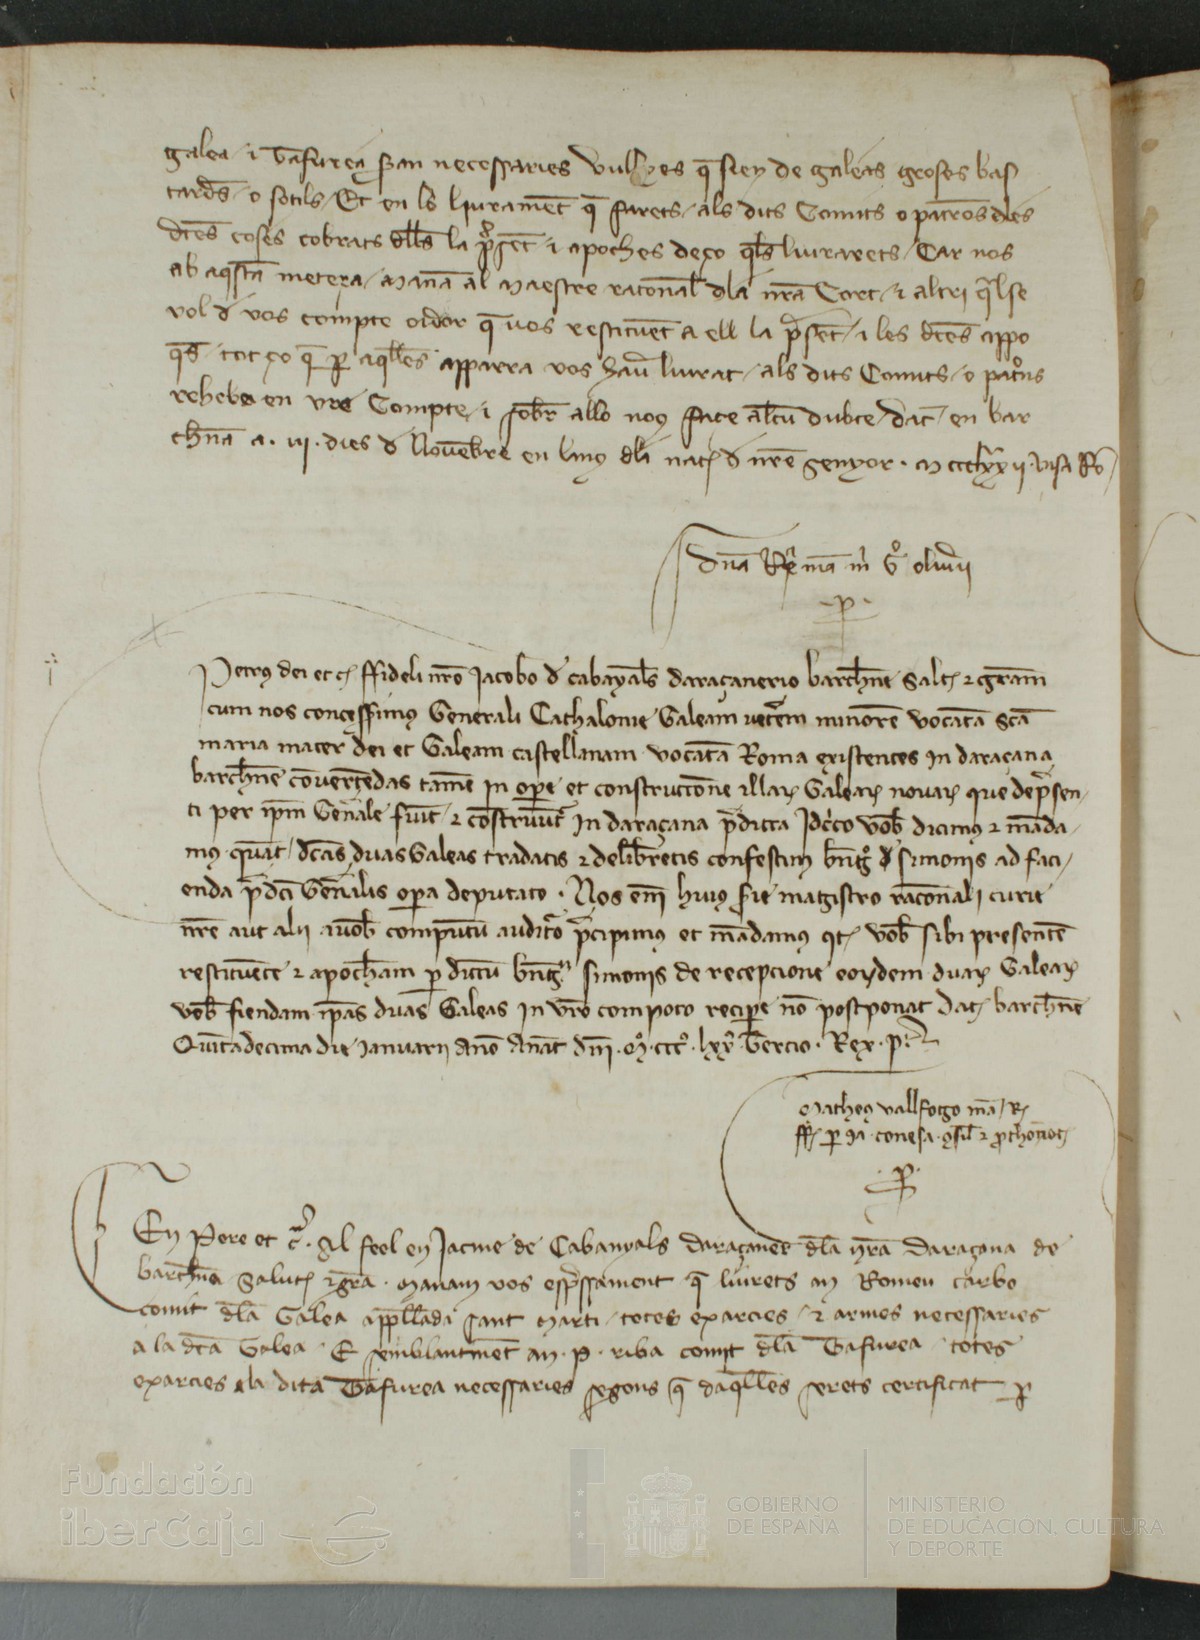 galea / i Tafurea seran necessaries vullyes q̃ sien de galeas grosses bas
tardẽs / o sotils / Et en lo liurament q̃ farets / als dits Comits o patrõs dles
dc̃es coses cobrats dllˢ la p̃sẽt i apoches deço q̃ls liurarets / Car nos
ab aq̃sta metexa / manã al Maestre racional dla nr̃a Cort / & altri q̃lse
vol d vos compte oidor q̃ vos restituẽt a ell la p̃sẽt / i les dc̃es appo
q̃s / tot ço q̃ p aq̃lles apparra vos hauer liurat / als dits Comits / o patrõs
reheba en vr̃e Compte / i sobr allo noy face alcũ dubte / dat̃ en bar
chñā a . iii . dies d Nouẽbre en lany dla nat̃ d nr̃e senyor . M ccclxxii . visa Rō
dñā Rx̃ mā m̃ Gº oliuẽrii
. p .
Petrus dei et c̃ ffideli nr̃o Jacobo d cabayãls daraçanerio barchñe salt̃ & grãm
cum nos concesserimus Generali Cathalonie Galeam vetẽrem minorẽ vocatã scã
maria mater dei et Galeam castellanam vocatã Roma existentes in daraçana
barchñe cõuertẽdas tamẽ in opere et constructiõne illarz Galearz nouarz que de p̃sen
ti per ip̃m Genẽrale fiũt / & cõstruũt̃ in daraçana p̃dicta Idcirco vob̃ dicimus & mãda
mus quãt̃ / dc̃as duas Galeas tradatis & delibretis confestim bñgº d simonis ad faci
enda p̃dc̃i Genẽralis opera deputato . Nos eñi huius s̃ie magistro rac̃onali curie
nr̃e aut alii a uob̃ computũ auditº p̃cipimus et mãdamus qt̃ vob̃ sibi presentẽ
restituẽte & apocham p dictũ bñgm simonis de recepcione eorũdem duarz Galearz
vob̃ fiendam ip̃as duas Galeas in vr̃o compoto recipe nõ postponat dat̃ barchñe
Quĩtadecima die Januarii Anõ Anat̃ dñi . Mº . cccº . lxxº . Tercio . Rex . pº
Matheus vallfogo mã / R̃
ff̃ p Ja . conesa . 9sil̃ & p̃thonot̃
. p .
En Pere et c̃ . Al feel en Jacme de Cabanyals daraçaner dla nr̃a daraçana de
barchña salut̃ & grã . Manam vos esp̃ssament q̃ liurets an Romeu carbo
comit dla Galea app̃llada sant marti / totes exarcies / & armes necessaries
a la dc̃a Galea E semblantmẽt an . P . riba comit dla Tafurea totes
exarcies a la dita Tafurea necessaries segons q̃ daq̃lles serets certificat p
Fundación
iberCaja
GOBIERNO
DE ESPAÑA
MINISTERIO
DE EDUCACION, CULTURA
Y DEPORTE